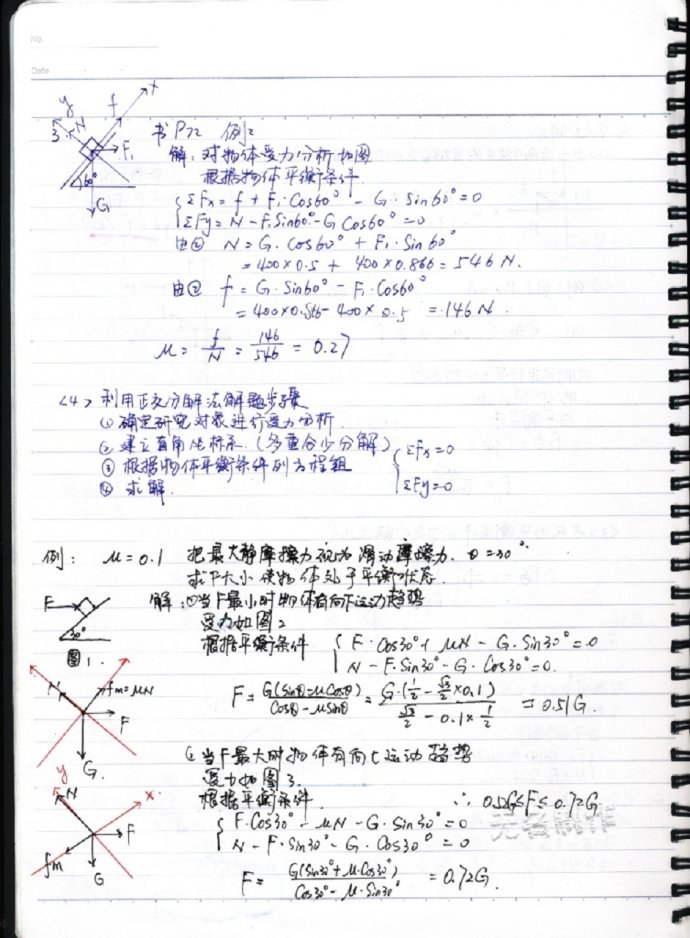 No
Date
书P72 例2
解:对物体受力分析如图
根据物体平衡条件
ΣFx = f + F₁·Cos60° - G·Sin60° = 0
ΣFy = N - F₁Sin60° - G Cos60° = 0
由② N = G·Cos60° + F₁·Sin60°
= 400×0.5 + 400×0.866 = 546 N.
f = G·Sin60° - F₁·Cos60°
= 146 N.
μ = f/N = 146/546 = 0.27
<4> 利用正交分解法解题步骤
① 确定研究对象进行受力分析.
② 建立直角坐标系.(多重合少分解)
③ 根据物体平衡条件列方程组 { ΣFx=0
④ 求解. ΣFy=0
例: μ=0.1 把最大静摩擦力视为滑动摩擦力. θ=30°.
求F大小使物体处于平衡状态.
解:①当F最小时物体有向下运动趋势
受力如图2
根据平衡条件 { F·Cos30° + μN - G·Sin30° = 0
N - F·Sin30° - G·Cos30° = 0.
F = G(Sinθ-μCosθ)/(Cosθ-μSinθ) = G·(1/2 - √3/2×0.1)/(√3/2 - 0.1×1/2) = 0.51G.
当F最大时物体有向上运动趋势
受力如图3.
根据平衡条件.
F·Cos30° - μN - G·Sin30° = 0
N - F·Sin30° - G·Cos30° = 0
F = G(Sin30° + μ·Cos30°)/(Cos30° - μ·Sin30°) = 0.72G.
y
f
x
3.
N
F₁
60°
G
F
30°
图1.
N
fm=μN
F
G
y
N
x
F
fm
G